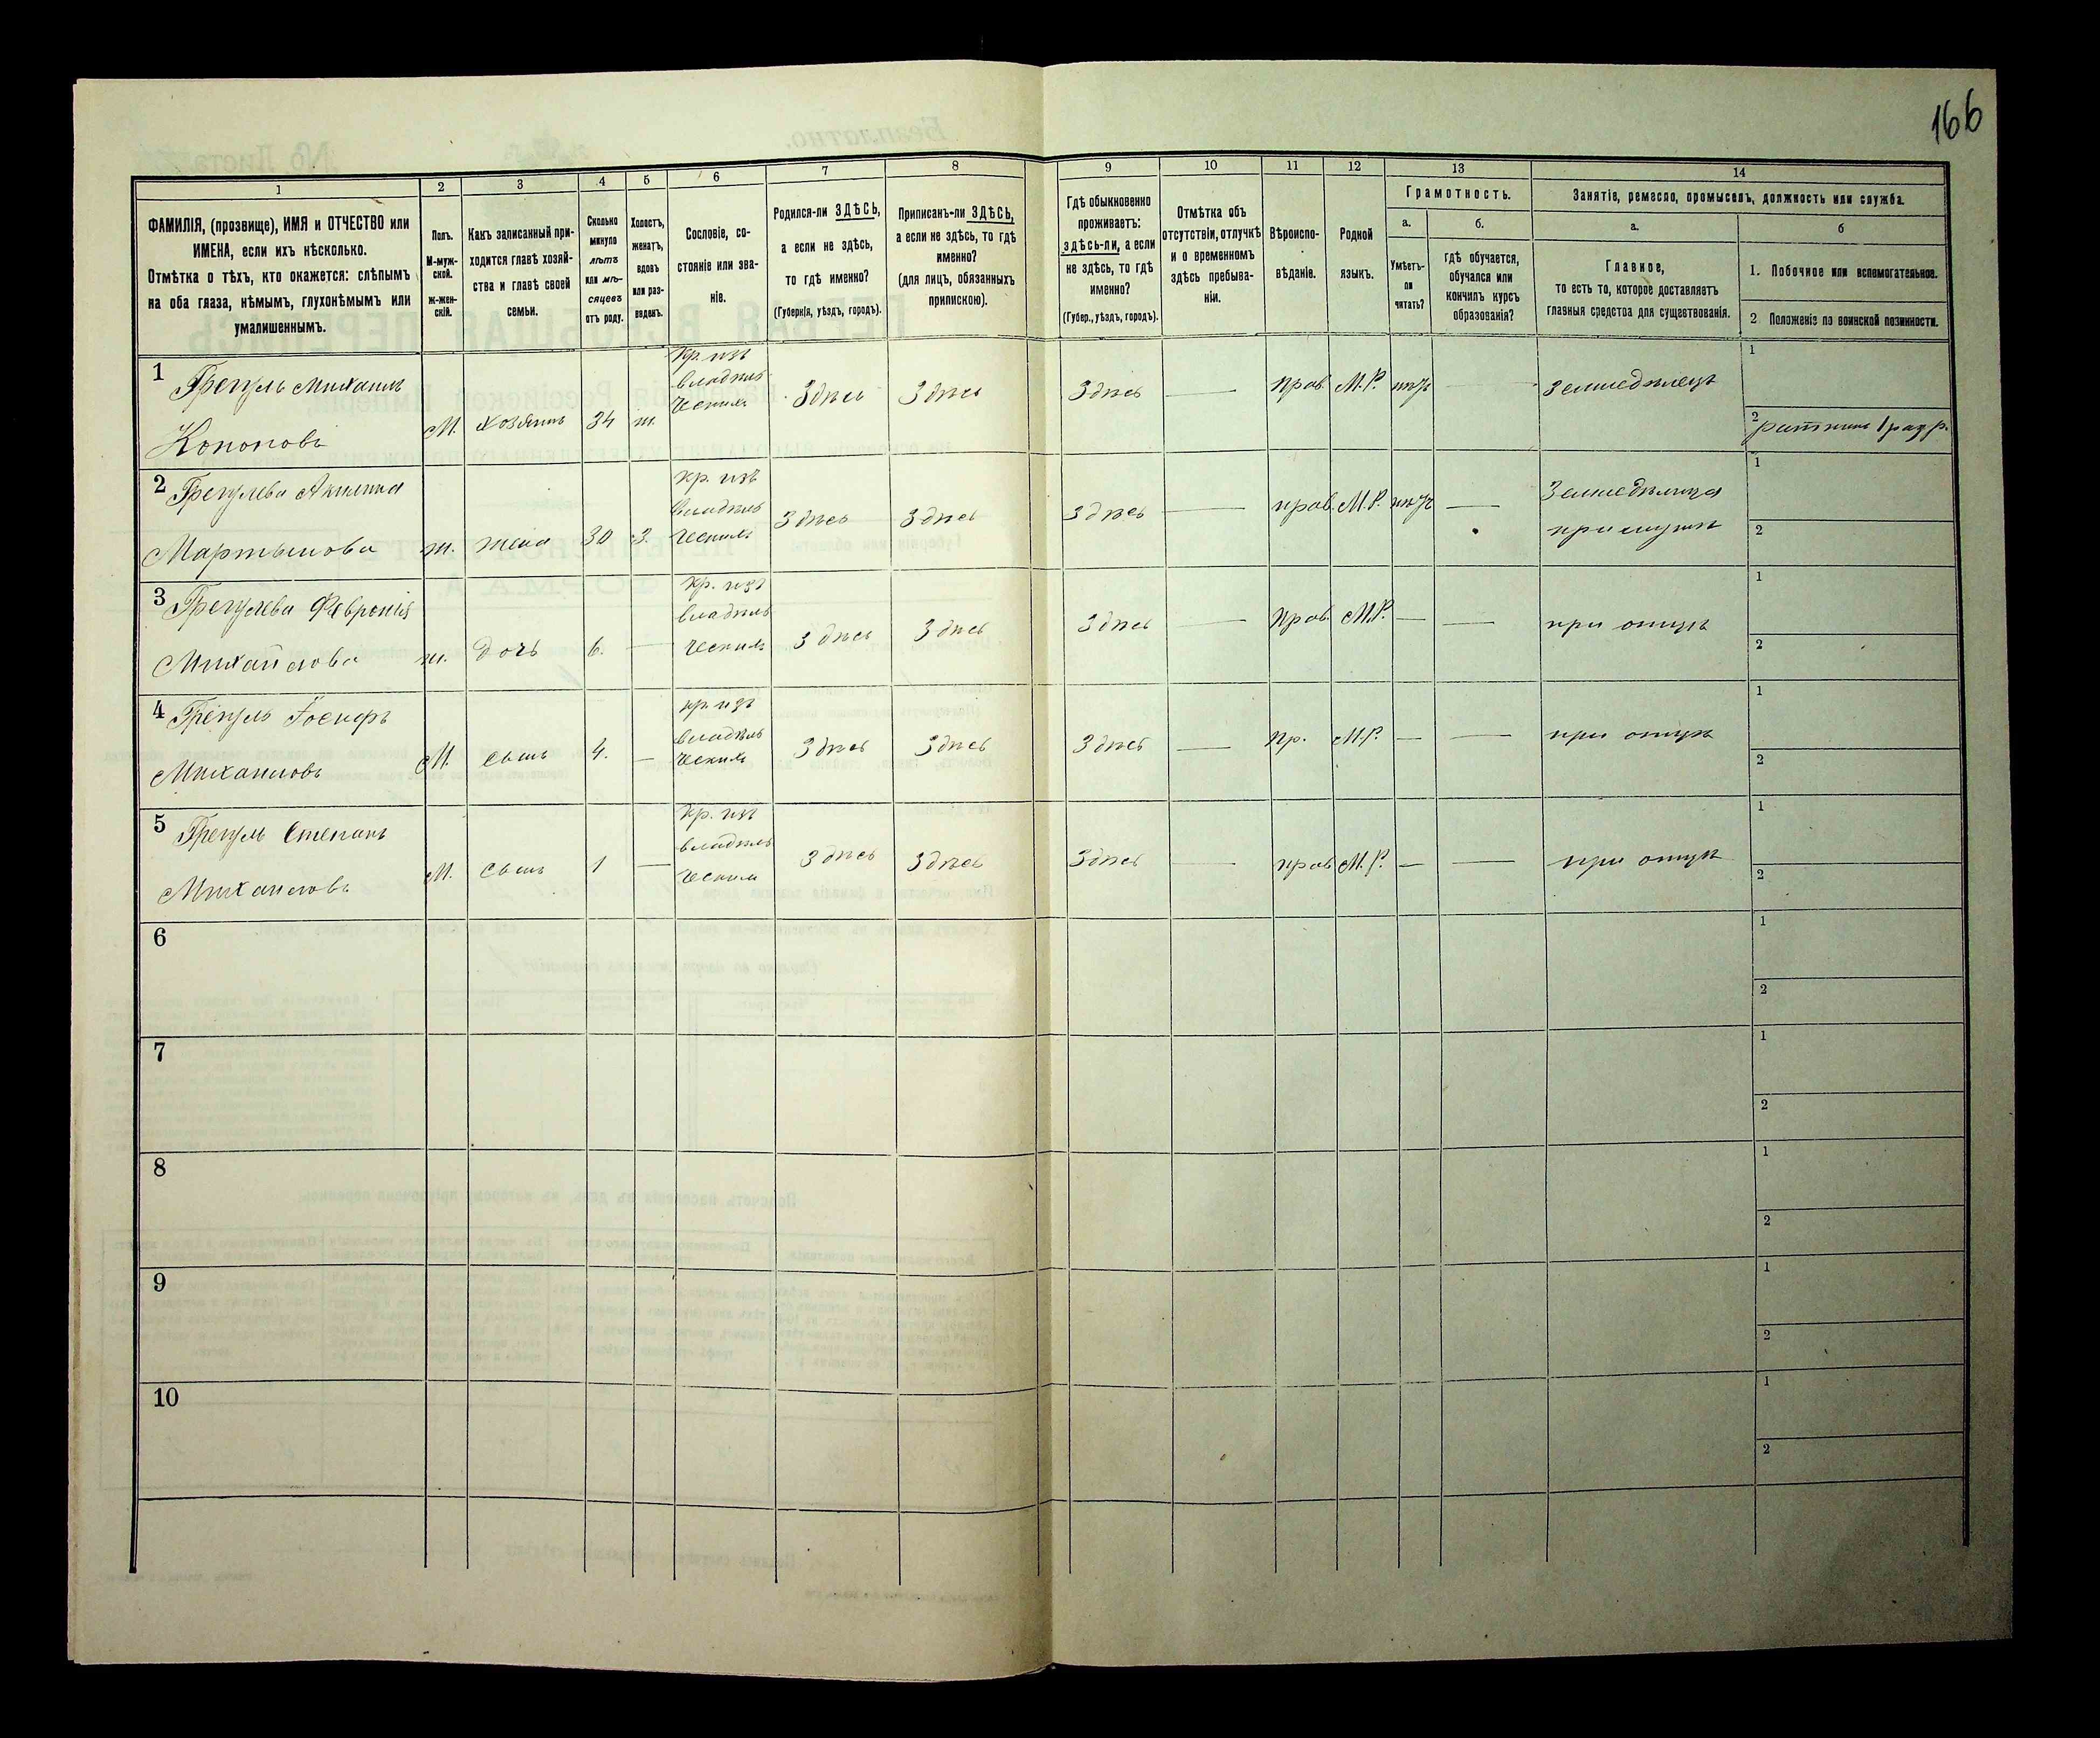 166
1
2
3
4
5
6
7
8
9
10
11
12
13
14
ФАМИЛІЯ, (прозвище), ИМЯ и ОТЧЕСТВО или
ИМЕНА, если ихъ нѣсколько.
Отмѣтка о тѣхъ, кто окажется: слѣпымъ
на оба глаза, нѣмымъ, глухонѣмымъ или
умалишеннымъ.
Полъ.
М-муж-
ской.
ж-жен-
скій.
Какъ записанный при-
ходится главѣ хозяй-
ства и главѣ своей
семьи.
Сколько
минуло
лѣтъ
или мѣ-
сяцевъ
отъ роду.
Холостъ,
женатъ,
вдовъ
или раз-
веденъ.
Сословіе, со-
стояніе или зва-
ніе.
Родился-ли ЗДѢСЬ,
а если не здѣсь,
то гдѣ именно?
(Губернія, уѣздъ, городъ).
Приписанъ-ли ЗДѢСЬ,
а если не здѣсь, то гдѣ
именно?
(для лицъ, обязанныхъ
припискою).
Гдѣ обыкновенно
проживаетъ:
здѣсь-ли, а если
не здѣсь, то гдѣ
именно?
(Губер., уѣздъ, городъ).
Отмѣтка объ
отсутствіи, отлучкѣ
и о временномъ
здѣсь пребыва-
ніи.
Вѣроиспо-
вѣданіе.
Родной
языкъ.
Грамотность.
а.
Умѣетъ-
ли
читать?
б.
гдѣ обучается,
обучался или
кончилъ курсъ
образованія?
Занятія, ремесло, промыселъ, должность или служба.
а.
Главное,
то есть то, которое доставляетъ
главныя средства для существованія.
б
1. Побочное или вспомогательное.
2. Положеніе по воинской повинности.
1 Грегуль Михаилъ
Кононовъ
М. хозяинъ 34 ж.
Кр. изъ
владѣль
ческихъ
Здѣсь Здѣсь Здѣсь — Прав. М.Р. нѣтъ — Земледѣлецъ
1
2 ратникъ 1 разр.
2 Грегулева Акилина
Мартынова
ж. жена 30 з.
Кр. изъ
владѣль
ческихъ
Здѣсь Здѣсь Здѣсь — прав. М.Р. нѣтъ — Земледѣлица
при мужѣ
1
2
3 Грегулева Февронія
Михайлова
ж. дочь 6. —
Кр. изъ
владѣль
ческихъ
Здѣсь Здѣсь Здѣсь — Прав. М.Р. — — при отцѣ
1
2
4 Грегуль Іосифъ
Михаиловъ
М. сынъ 4. —
кр. изъ
владѣль
ческихъ
Здѣсь Здѣсь Здѣсь — пр. М.Р. — — при отцѣ
1
2
5 Грегуль Степанъ
Михаиловъ
М. сынъ 1 —
Кр. изъ
владѣль
ческихъ
Здѣсь Здѣсь Здѣсь — прав. М.Р. — — при отцѣ
1
2
6
1
2
7
1
2
8
1
2
9
1
2
10
1
2